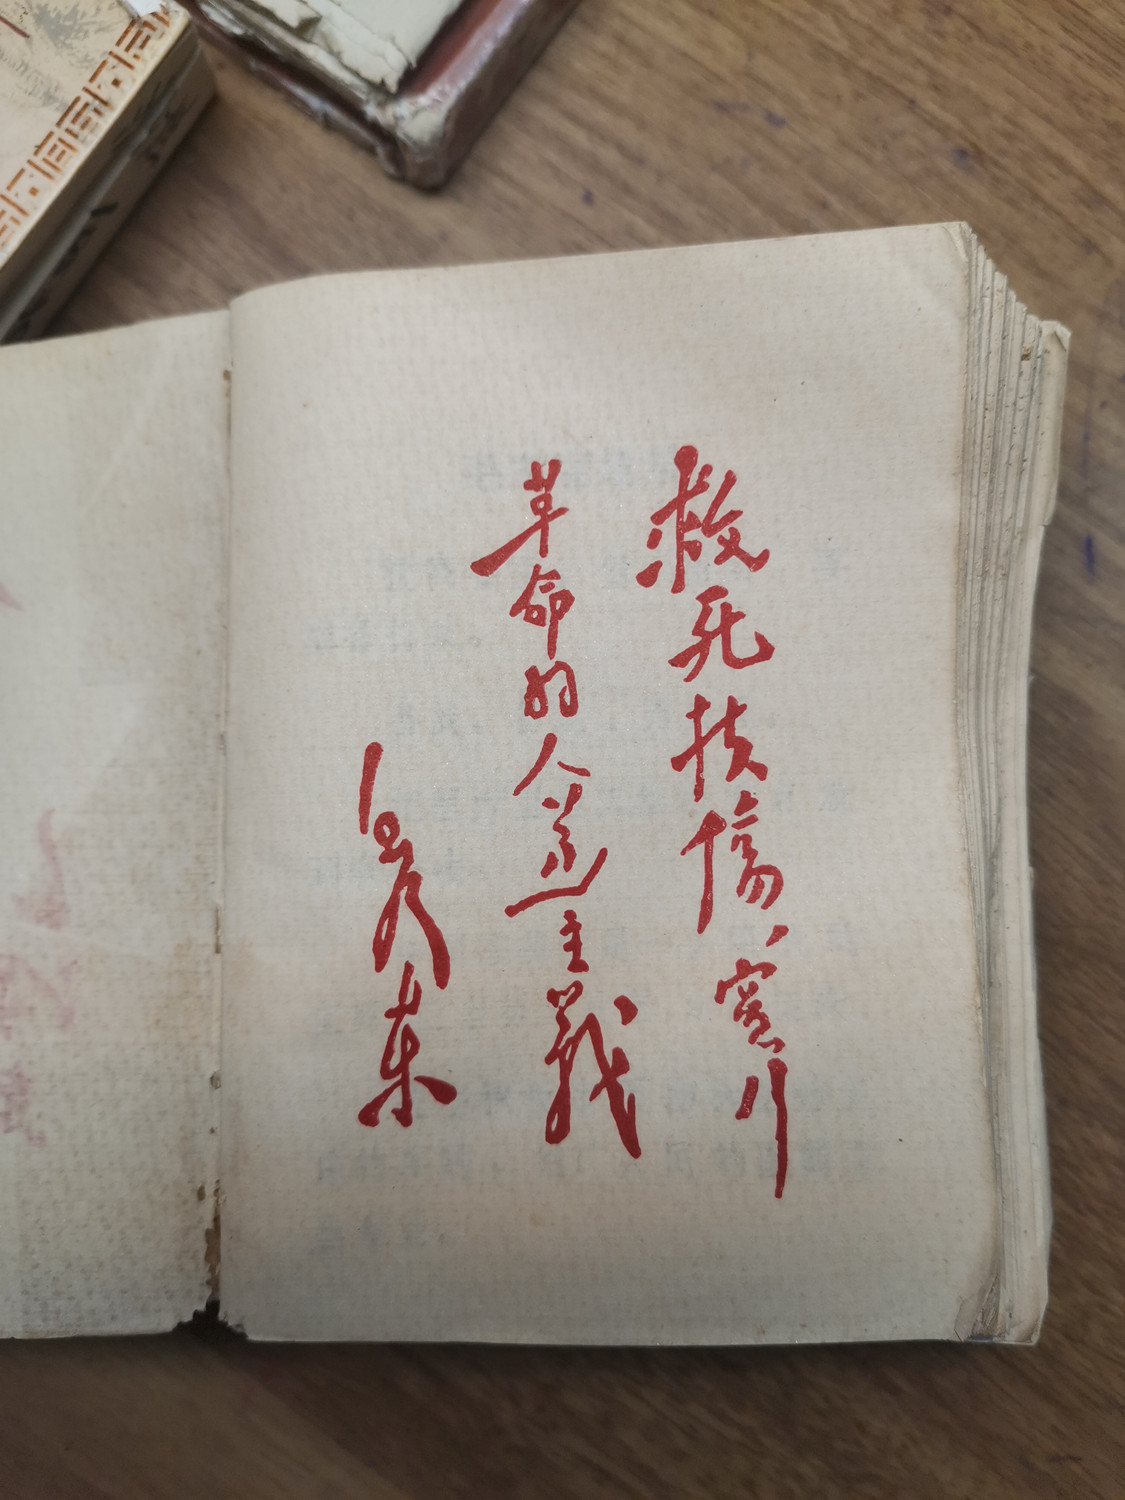 救死扶傷、实行
革命的人道主義
毛泽东